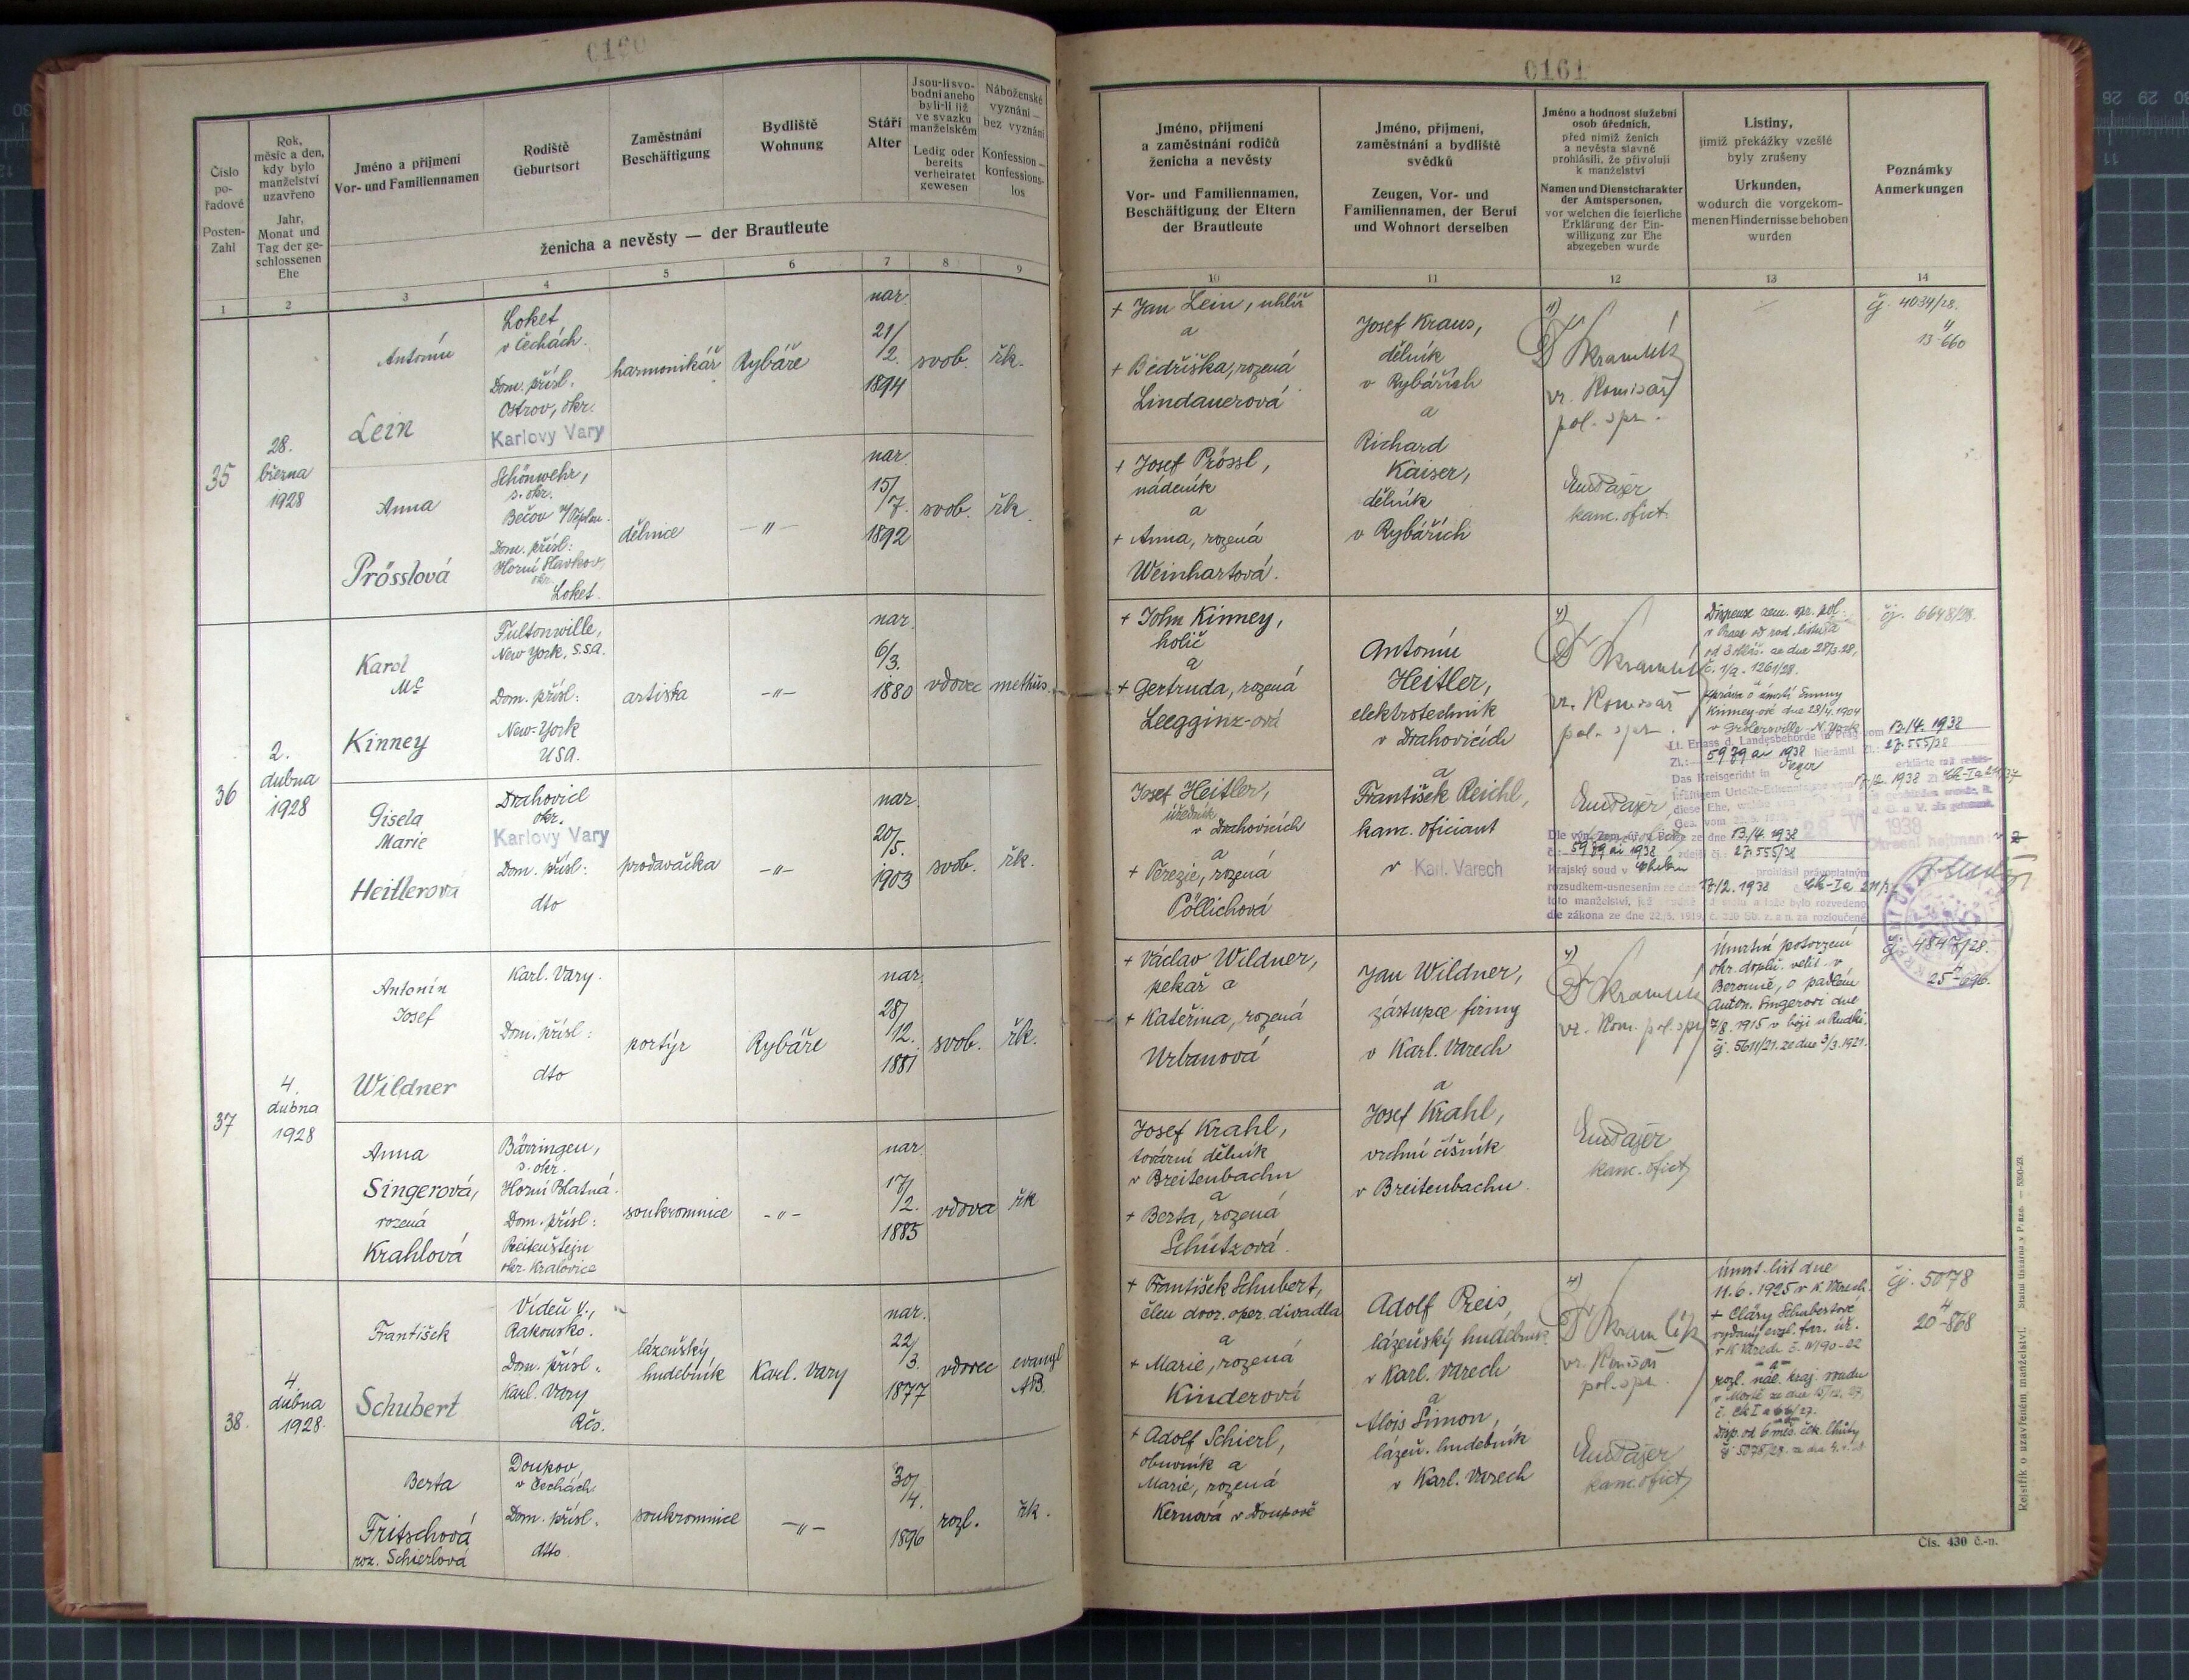 0161
Číslo
po-
řadové
Posten-
Zahl
Rok,
měsíc a den,
kdy bylo
manželství
uzavřeno
Jahr,
Monat und
Tag der ge-
schlossenen
Ehe
Jméno a příjmení
Vor- und Familiennamen
Rodiště
Geburtsort
Zaměstnání
Beschäftigung
Bydliště
Wohnung
Stáří
Alter
Jsou-li svo-
bodni aneho
byli-li již
ve svazku
manželském
Ledig oder
bereits
verheiratet
gewesen
Náboženské
vyznání —
bez vyznání
Konfession —
konfessions-
los
ženicha a nevěsty — der Brautleute
1 2 3 4 5 6 7 8 9
35
28.
března
1928
Antonín
Lein
Loket
v Čechách.
Dom. přísl:
Ostrov, okr.
Karlovy Vary
harmonikář
Rybáře
nar.
21/
/2.
1894
svob.
řk.
Anna
Prösslová
Schönwehr,
s. okr.
Bečov n/Teplou.
Dom. přísl:
Horní Slavkov,
okr.
Loket.
dělnice
-"-
nar.
15/
/7.
1892
svob.
řk.
36
2.
dubna
1928
Karol
Mc
Kinney
Fultonwille,
New York, S.S.A.
Dom. přísl:
New-York
USA.
artista
-"-
nar.
6/3.
1880
vdovec
methus.
Gisela
Marie
Heitlerová
Drahovice
okr.
Karlovy Vary
Dom. přísl:
dto
prodavačka
-"-
nar.
20/5.
1903
svob.
řk.
37
4.
dubna
1928
Antonín
Josef
Wildner
Karl. Vary.
Dom. přísl:
dto
portýr
Rybáře
nar.
28/
/12.
1881
svob.
řk.
Anna
Singerová,
rozená
Krahlová
Bärringen,
s. okr.
Horní Blatná.
Dom. přísl:
okr. Kralovice
soukromnice
-"-
nar.
17/
/2.
1885
vdova
řk
38.
4.
dubna
1928.
František
Schubert
Vídeň V.,
Rakousko.
Dom. přísl:
Karl. Vary
Rčs.
lázeňský
hudebník
Karl. Vary
nar.
22/
/3.
1877
vdovec
evangl
AB.
Berta
Fritschová
roz. Schierlová
Doupov,
v Čechách.
Dom. přísl:
dtto
soukromnice
-"-
30/
/4.
1896
rozl.
řk.
Jméno, příjmení
a zaměstnání rodičů
ženicha a nevěsty
Vor- und Familiennamen,
Beschäftigung der Eltern
der Brautleute
Jméno, příjmení,
zaměstnání a bydliště
svědků
Zeugen, Vor- und
Familiennamen, der Beruf
und Wohnort derselben
Jméno a hodnost služební
osob úředních,
před nimiž ženich
a nevěsta slavně
prohlásili, že přivolují
k manželství
Namen und Dienstcharakter
der Amtspersonen,
vor welchen die feierliche
Erklärung der Ein-
willigung zur Ehe
abgegeben wurde
Listiny,
jimiž překážky vzešlé
byly zrušeny
Urkunden,
wodurch die vorgekom-
menen Hindernisse behoben
wurden
Poznámky
Anmerkungen
10 11 12 13 14
+ Jan Lein, uhlíř
a
+ Bedřiška, rozená
Lindauerová
+ Josef Prössl,
nádeník
a
+ Anna, rozená
Weinhartová.
Josef Kraus,
dělník
v Rybářích
a
Richard
Kaiser,
dělník
v Rybářích
vr. Komisař
pol. spr.
kanc. ofict.
čj. 4034/28.
+ John Kinney,
holič
a
+ Gertruda, rozená
Leegginz-ová
Josef Heitler,
úředník
v Drahovicích
a
+ Terezie, rozená
Pöllichová
Antonín
Heitler,
elektrotechnik
v Drahovicích
a
František Reichl,
kanc. oficiant
v Karl. Varech
vr. Komisař
pol. spr.
Dispense zem. spr. pol.
od 3 ohláš. ze dne 28/3.28,
č. 1/a - 1261/28.
Zpráva o úmrtí Emmy
Kinney-ové dne 28/4. 1904
čj. 6648/28.
Lt. Erlass d. Landesbehörde in Prag vom 13./4. 1938
Zl.: 5979 ai 1938 hierämtl. Zl.: 27.555/38
Das Kreisgericht in Eger
17/12. 1938
Dle výn. Zem. úř. v Praze ze dne 13./4. 1938
č.: 5979 ai 1938 zdejší čj.: 27.555/38
Krajský soud v Chebu prohlásil právoplatným
rozsudkem-usnesením ze dne 17/2. 1938 Ck-Ia 211/37
toto manželství,
dle zákona ze dne 22./5. 1919, č. 320 Sb. z. a n. za rozloučené
+ Václav Wildner,
pekař a
+ Kateřina, rozená
Urbanová
Josef Krahl,
tovární dělník
v Breitenbachu
a
+ Berta, rozená
Schützová.
Jan Wildner,
zástupce firmy
v Karl. Varech
a
Josef Krahl,
vrchní číšník
v Breitenbachu.
vr. Kom. pol. spr.
kanc. ofict
Úmrtní potvrzení
okr. doplň. velit. v
Berouně, o padlém
Anton. Singerovi dne
7/8. 1915 v boji u Rudki.
čj. 5611/21. ze dne 3/3. 1921.
čj. 4847/28.
+ František Schubert,
člen dvor. oper. divadla
a
+ Marie, rozená
Kinderová
+ Adolf Schierl,
obuvník a
Marie, rozená
Kernová v Doupově
Adolf Preis,
lázeňský hudebník
v Karl. Varech
a
Alois Simon,
lázeň. hudebník
v Karl. Varech
vr. Komisař
pol. spr.
kanc. ofict
Úmrt. list dne
11.6. 1925 v K. Varech
+ Cläry Schubertové
vydaný evgl. far. úř.
-a-
čj. 5078
Rejstřík o uzavřeném manželství. Státní tiskárna v Praze. — 5360-23.
Čís. 430 č.-n.